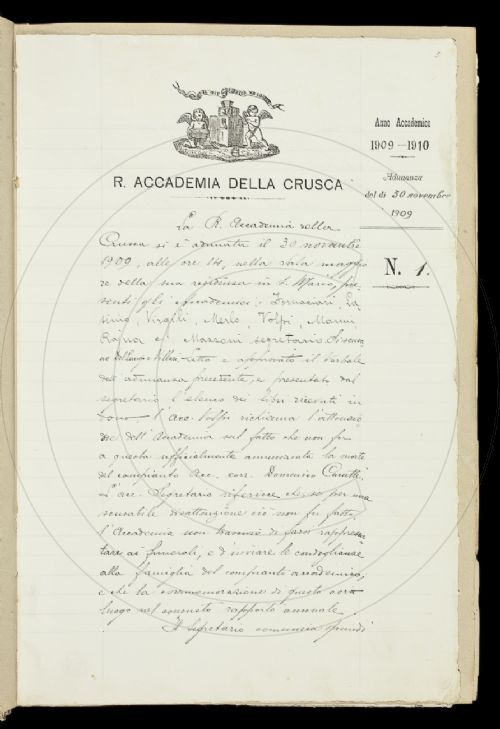 5
IL PIÙ BEL FIOR NE COGLIE
R. ACCADEMIA DELLA CRUSCA
Anno Accademico
1909-1910
Adunanza
del dì 30 novembre
1909
N. 1.
La R. Accademia della
Crusca si è adunata il 30 novembre
1909, alle ore 14, nella sala maggio
re della sua residenza in S. Marco, pre
senti gli Accademici: Fornaciari, Ra
Virgili, Merlo, Volpi,
Rajna e Mazzoni, segretario.
Letto e approvato il Verbale
dell'adunanza precedente, e presentato dal
segretario l'elenco dei libri ricevuti in
dono, l'acc. Volpi richiama l'attenzio
ne dell'Accademia sul fatto che non fu
a questa ufficialmente annunziata la morte
del compianto Acc. corr. Domenico Carutti.
L'acc. Segretario riferisce che, se per una
scusabile disattenzione ciò non fu fatto,
l'Accademia non trascurò di farsi rappresen
tare ai funerali, e d'inviare le condoglianze
alla famiglia del compianto accademico;
e che la commemorazione di questo avrà
luogo nel consueto rapporto annuale.
Il Segretario comincia quindi